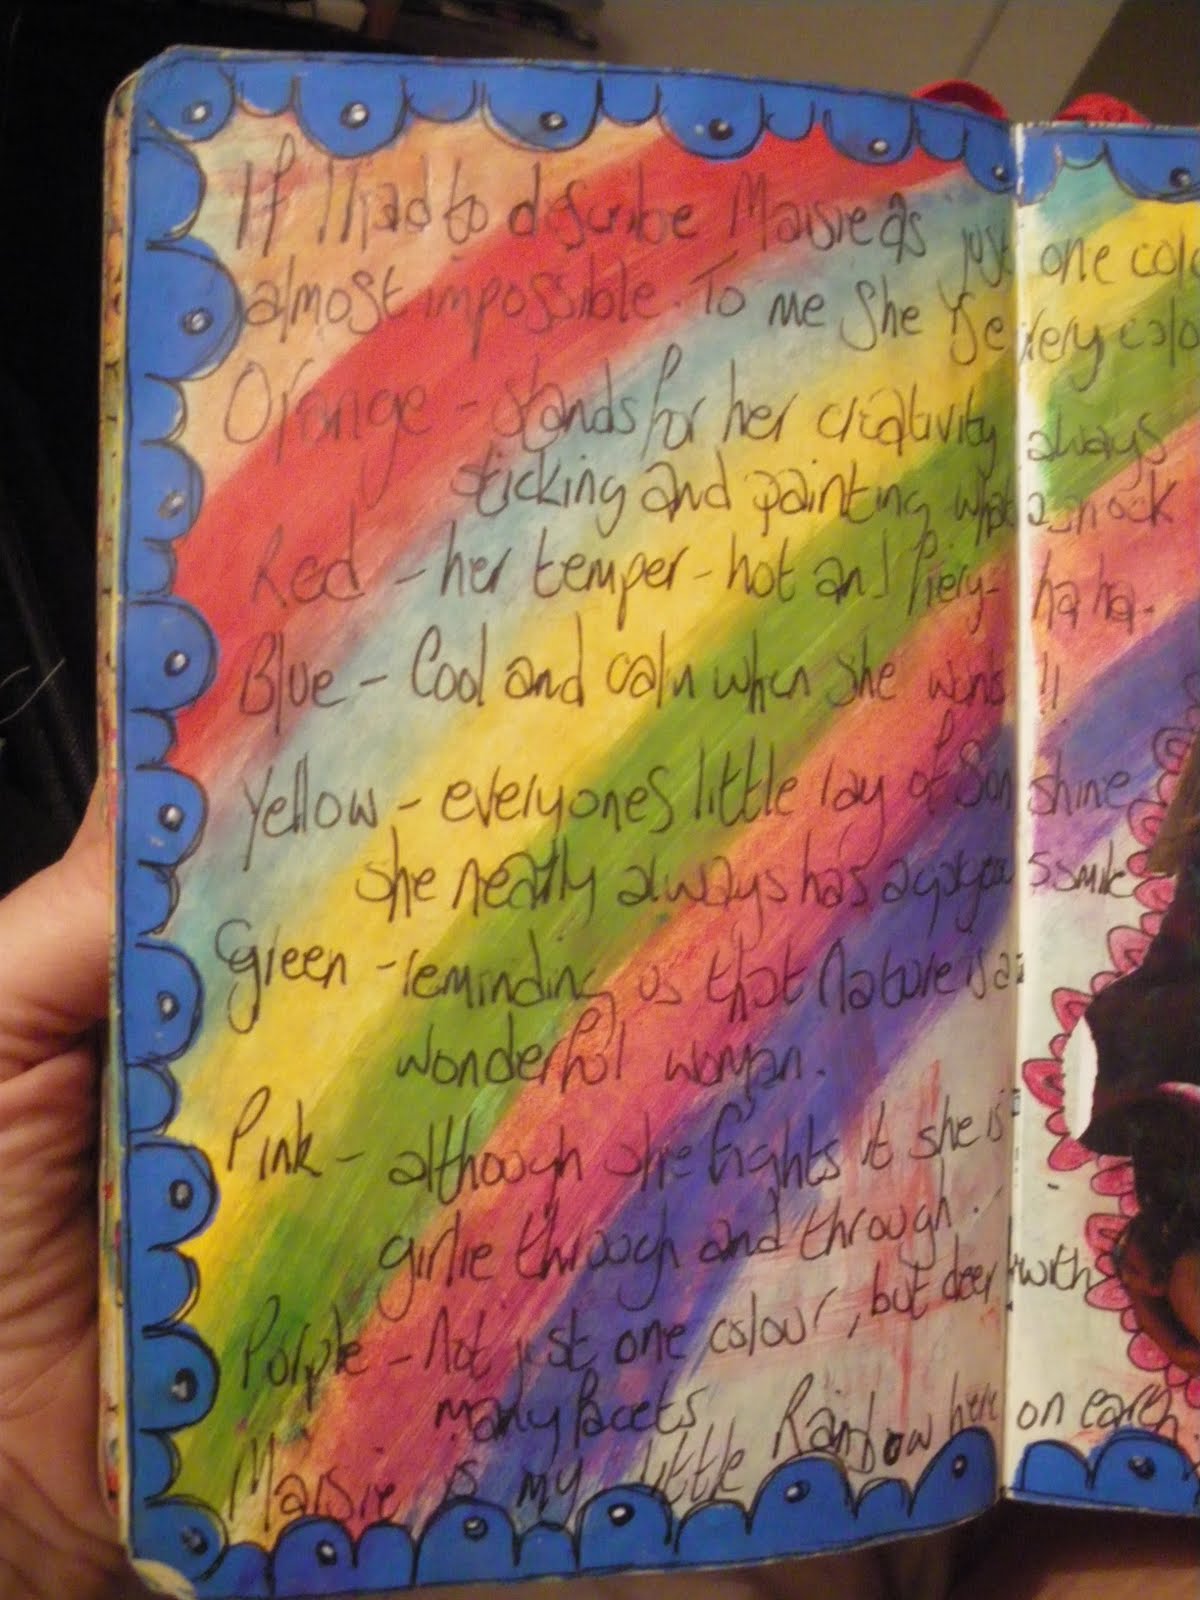 If I had to describe Maisie as just one colo
almost impossible. To me she is every colo
Orange - stands for her creativity always
sticking and painting, what a
Red - her temper - hot and fiery - ha ha.
Blue - Cool and calm when she wins !!
Yellow - everyones little ray of Sonshine
she nearly always has a smile
Green - reminding us that Nature is a
wonderful woman.
Pink - although she fights it she is
girlie through and through.
Purple - Not just one colour, but deep with
many facets
Maisie is my little Rainbow here on earth.